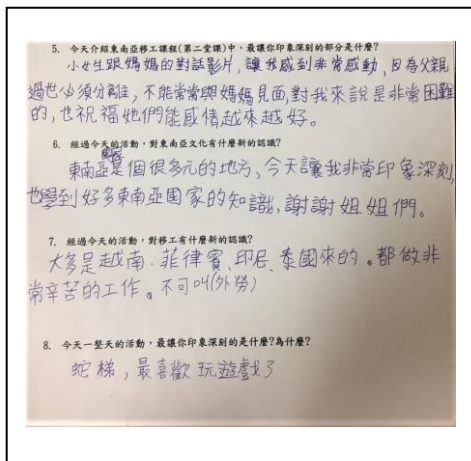 5. 今天介紹東南亞移工課程(第二堂課)中，最讓你印象深刻的部分是什麼?
小女生跟媽媽的對話影片，讓我感到非常感動，因為父親
過世必須分離，不能常常與媽媽見面，對我來說是非常困難
的，也祝福她們能感情越來越好。
6. 經過今天的活動，對東南亞文化有什麼新的認識?
東南亞是個很多元的地方，今天讓我非常印象深刻，
也學到好多東南亞國家的知識，謝謝姐姐們。
7. 經過今天的活動，對移工有什麼新的認識?
大多是越南、菲律賓、印尼、泰國來的。都做非
常辛苦的工作。不可叫(外勞)
8. 今天一整天的活動，最讓你印象深刻的是什麼?為什麼?
蛇梯，最喜歡玩遊戲了